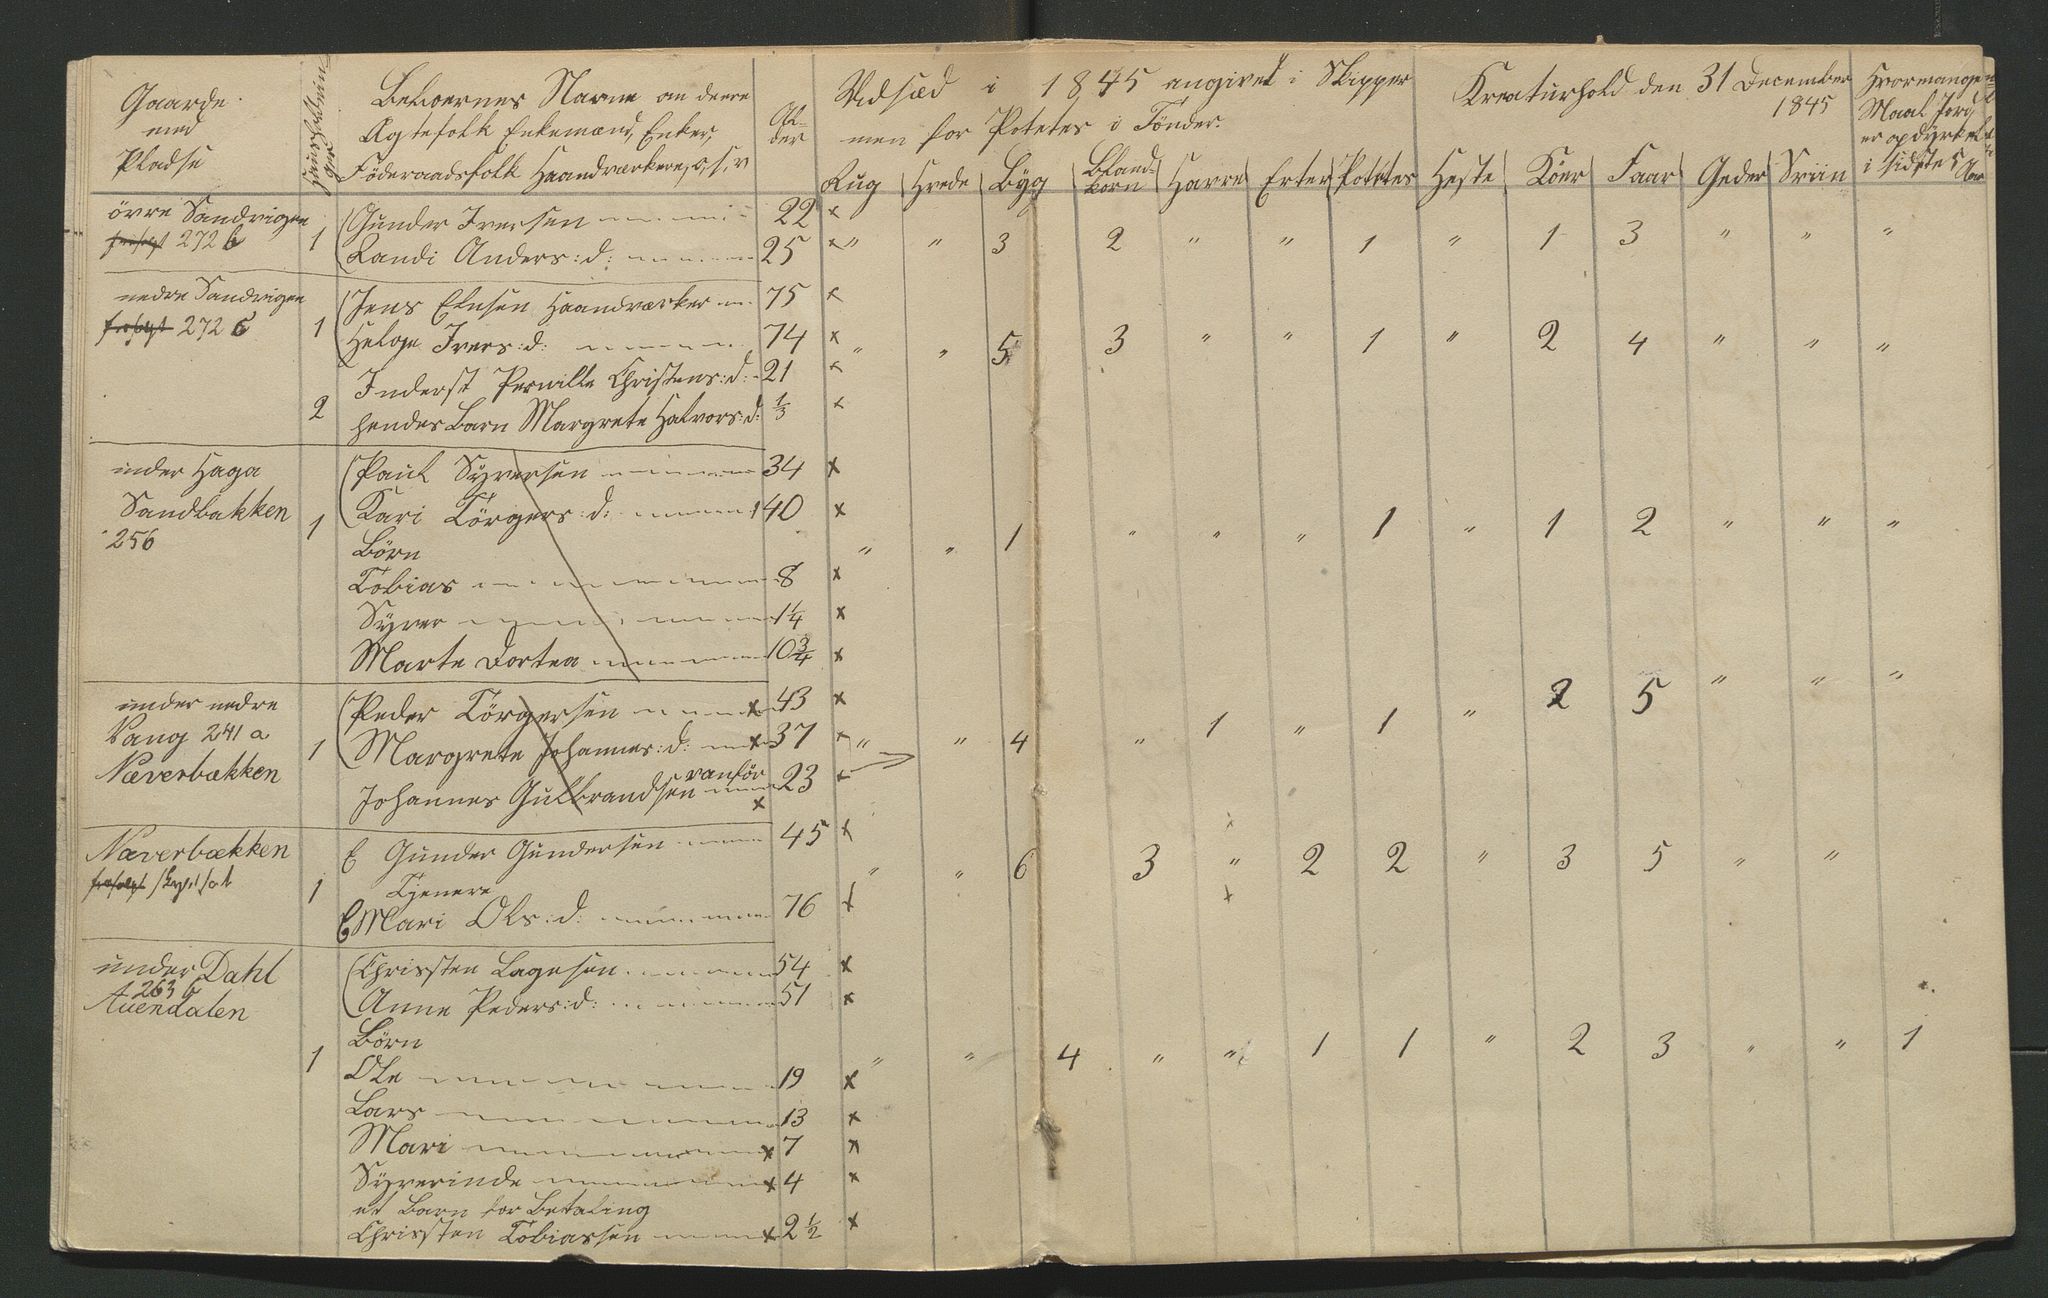 Gaarde
med
Pladse
Huusholdninger
Beboernes Navne om deere
Ægtefolk Enkemænd, Enker,
Föderaadsfolk Haandværkere, o, s, v
Al-
der
Udsæd i 1845 angivet i Skipper
men for Potetes i Tönder.
Rug Hvede Byg Bland-
korn Havre Erter Potetes
Kreaturhold den 31 December
1845
Heste Köer Faar Geder Sviin
Hvormange
Maal Jord
er opdyrket
i sidste 5
Aar
övre Sandvigen 1 Gunder Iversen 22 x
272 b Randi Anders:d: 25 x " " 3 2 " " 1 " 1 3 " " "
nedre Sandvigen Jens Elnsen Haandværker 75 x
272 c 1 Helge Ivers:d: 74 x " " 5 3 " " 1 " 2 4 " " "
Inderst Pernille Christens:d: 21 x
2 hendes Barn Margrete Halvors:d: 1/3 x
under Haga Paul Syversen 34 x
Sandbakken 1 Kari Törgers:d: 40 x
256 Börn " " 1 " " " 1 " 1 2 " " "
Tobias 8 x
Syver 1 1/4 x
Marte Dortea 10 3/4 x
under nedre Peder Törgersen x 43 x
Vang 241 a 1 Margrete Johannes:d: x 37 x " " 4 " 1 " 1 " 2 5 " " "
Næverbækken Johannes Gulbrandsen vanför x 23 x
Næverbækken E Gunder Gundersen 45 x
1 Tjenere " " 6 3 " 2 2 " 3 5 " "
E Mari Ols:d: 76 x
under Dahl Christen Lagesen 54 x
263 b
Auendalen Anne Peders:d: 51 x
Börn
1 Ole 19 x " " 4 " " 1 1 " 2 3 " " 1
Lars 13 x
Mari x 7 x
Syverinde x 4 x
et Barn for Betaling
Christen Tobiassen x 2 1/2 x